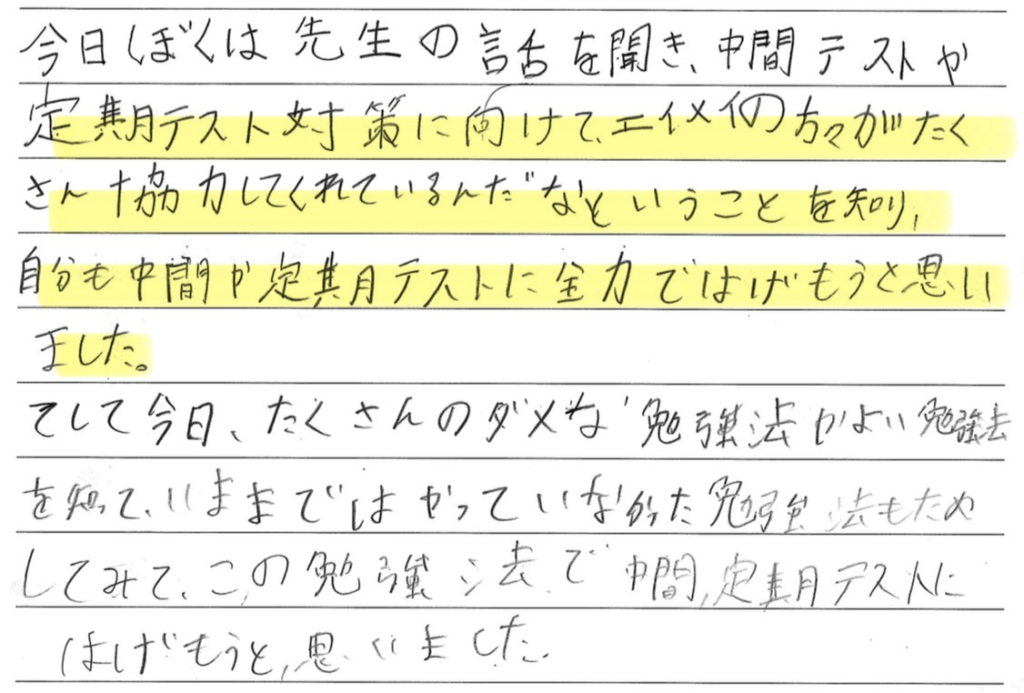 今日ぼくは先生の話を聞き、中間テストや
定期テスト対策に向けて、エイメイの方々がたく
さん協力してくれているんだなということを知り、
自分も中間や定期テストに全力ではげもうと思い
ました。
そして今日、たくさんのダメな勉強法やよい勉強法
を知って、いままではやっていなかった勉強法もため
してみて、この勉強法で中間,定期テストに
はげもうと,思いました.